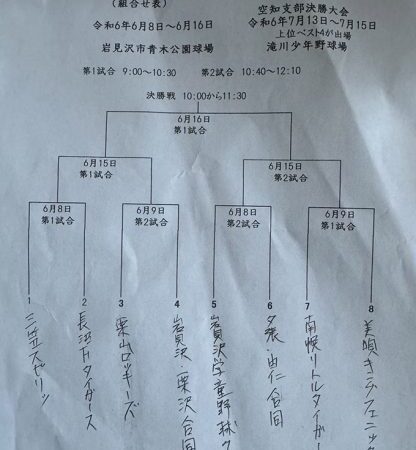 (組合せ表)
令和6年6月8日～6月16日
岩見沢市青木公園球場
空知支部決勝大会
令和6年7月13日～7月15日
上位ベスト4が出場
滝川少年野球場
第1試合 9:00～10:30 第2試合 10:40～12:10
決勝戦 10:00から11:30
6月16日
第1試合
6月15日
第1試合
6月15日
第2試合
6月8日
第1試合
6月9日
第2試合
6月8日
第2試合
6月9日
第1試合
1
2
長沼Fタイガース
3
栗山ロッキーズ
4
岩見沢・栗沢合同
5
岩見沢学童野球ク
6
夕張・由仁合同
7
南幌リトルタイガー
8
美唄
フェニック